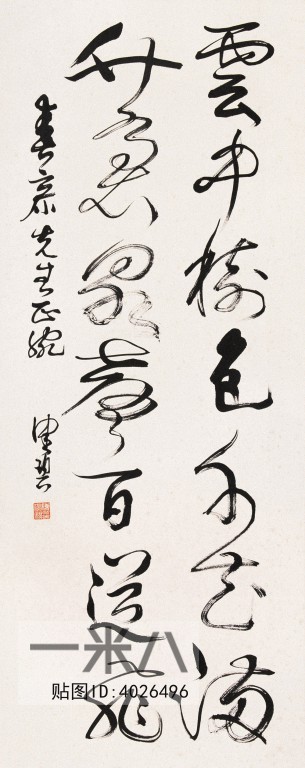 雲中樹色千花滿
竹裏泉聲百道飛
先生正腕
一米八
贴图ID:4026496